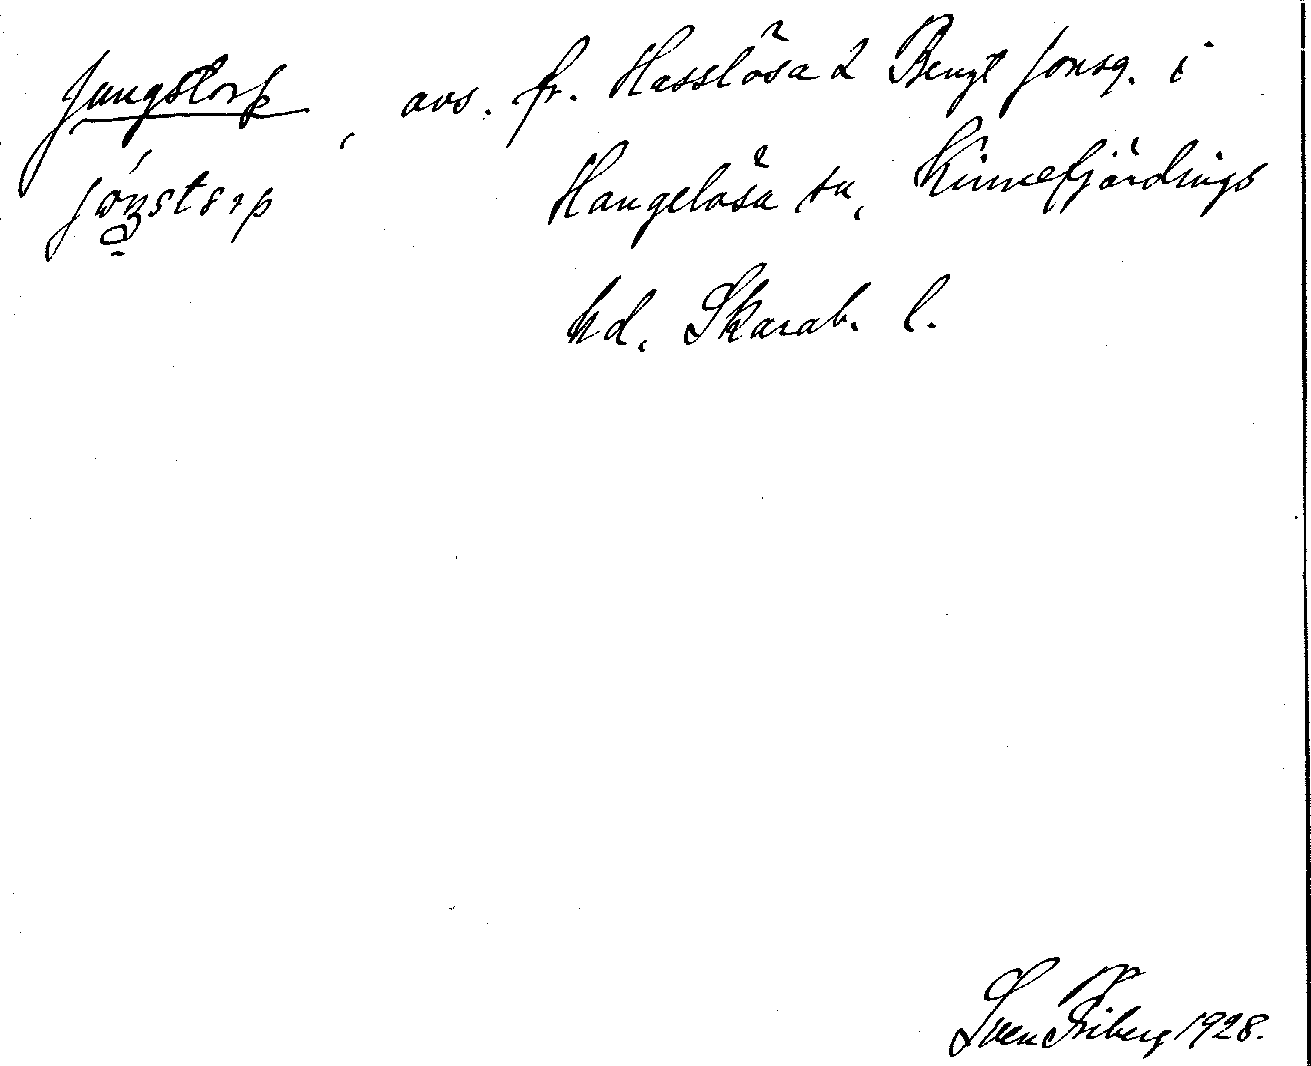 Jungstorp, avs. fr. Hasslösa 2 Bengt Jonsg. i
jóŋstorp Hangelösa sn, Kinnefjärdings
hd, Skarab. l.
Sven Friberg 1928.